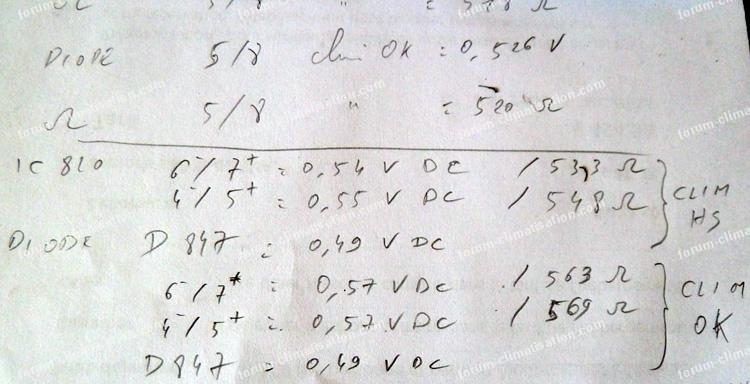 5/8 " = 528 Ω
DIODE 5/8 clim OK = 0,526 V
Ω 5/8 " = 520 Ω
IC 820 6⁻/7⁺ = 0,54 V DC / 533 Ω
4⁻/5⁺ = 0,55 V DC / 548 Ω
CLIM HS
DIODE D847 = 0,49 V DC
6⁻/7⁺ = 0,57 V DC / 563 Ω
4⁻/5⁺ = 0,57 V DC / 569 Ω
CLIM OK
D847 = 0,49 V DC
forum-climatisation.com